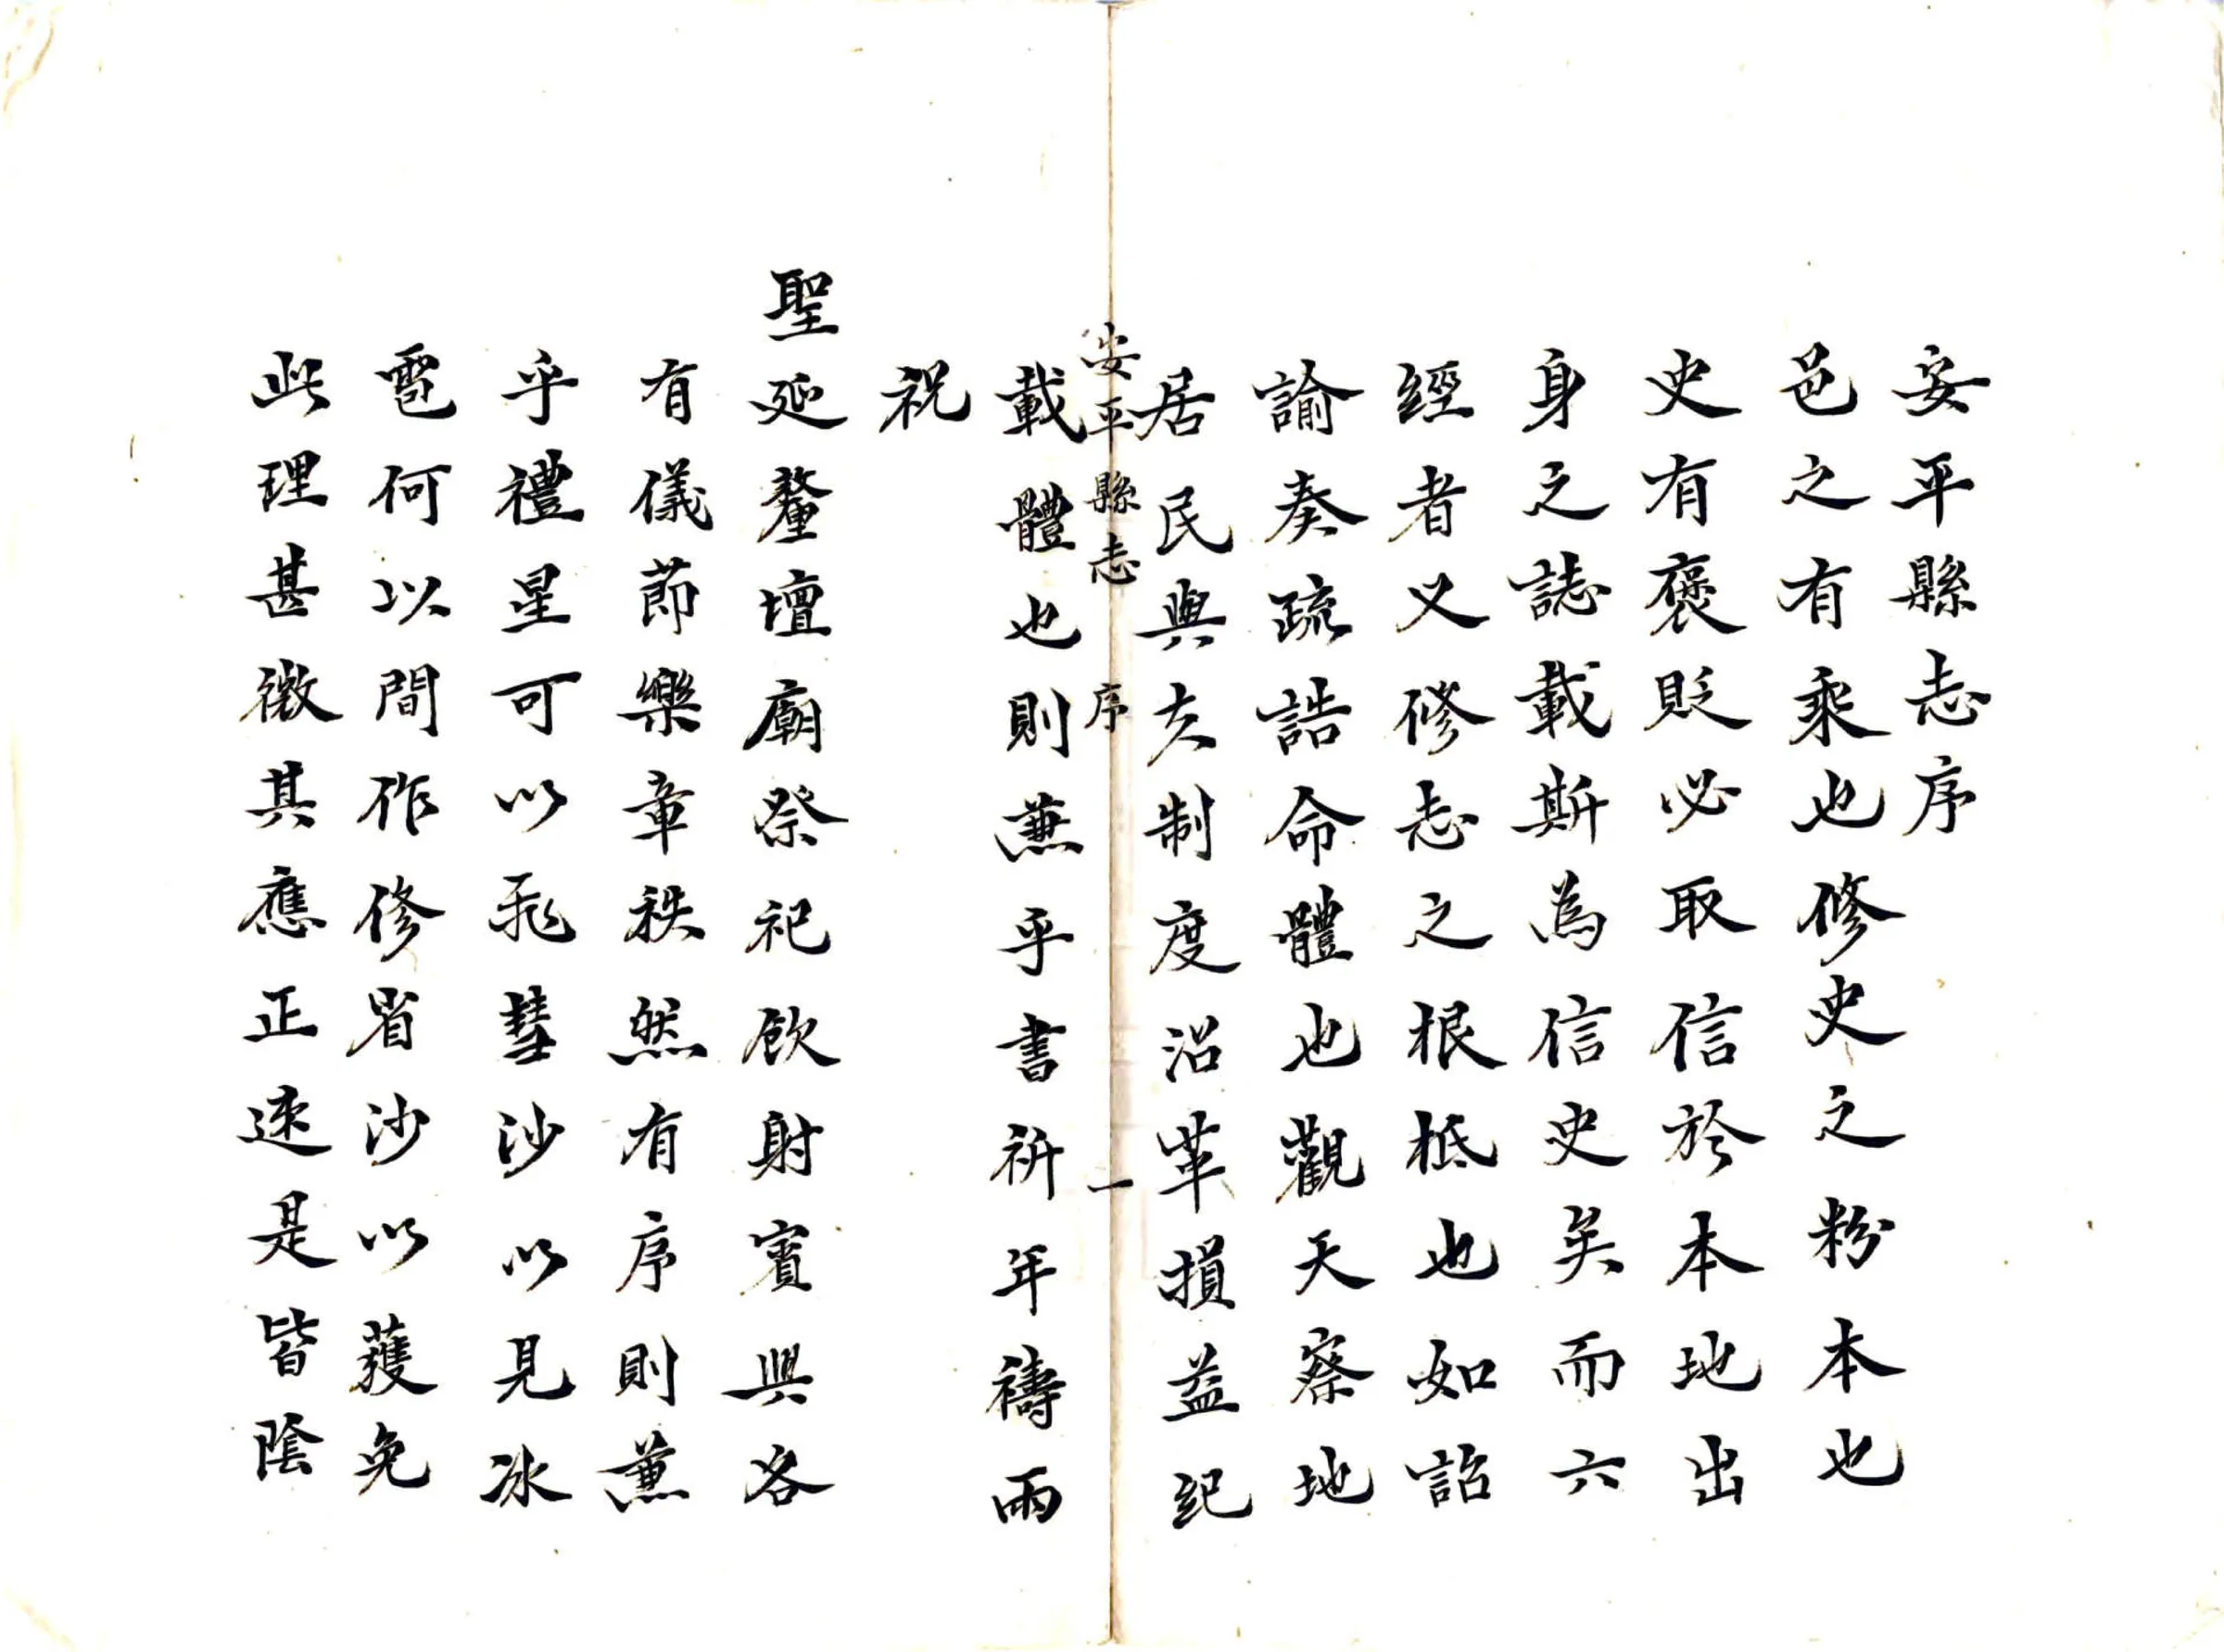 安平縣志序
邑之有乘也修史之粉本也
史有褒貶必取信於本地出
身之誌載斯為信史矣而六
經者又修志之根柢也如詔
諭奏疏誥命體也觀天察地
居民與夫制度沿革損益紀
安平縣志 序 一
載體也則兼乎書祈年禱雨
祝
聖延釐壇廟祭祀飲射賓興各
有儀節樂章秩然有序則兼
乎禮星可以飛彗沙以見冰
雹何以間作修省沙以獲免
此理甚微其應正速是皆陰